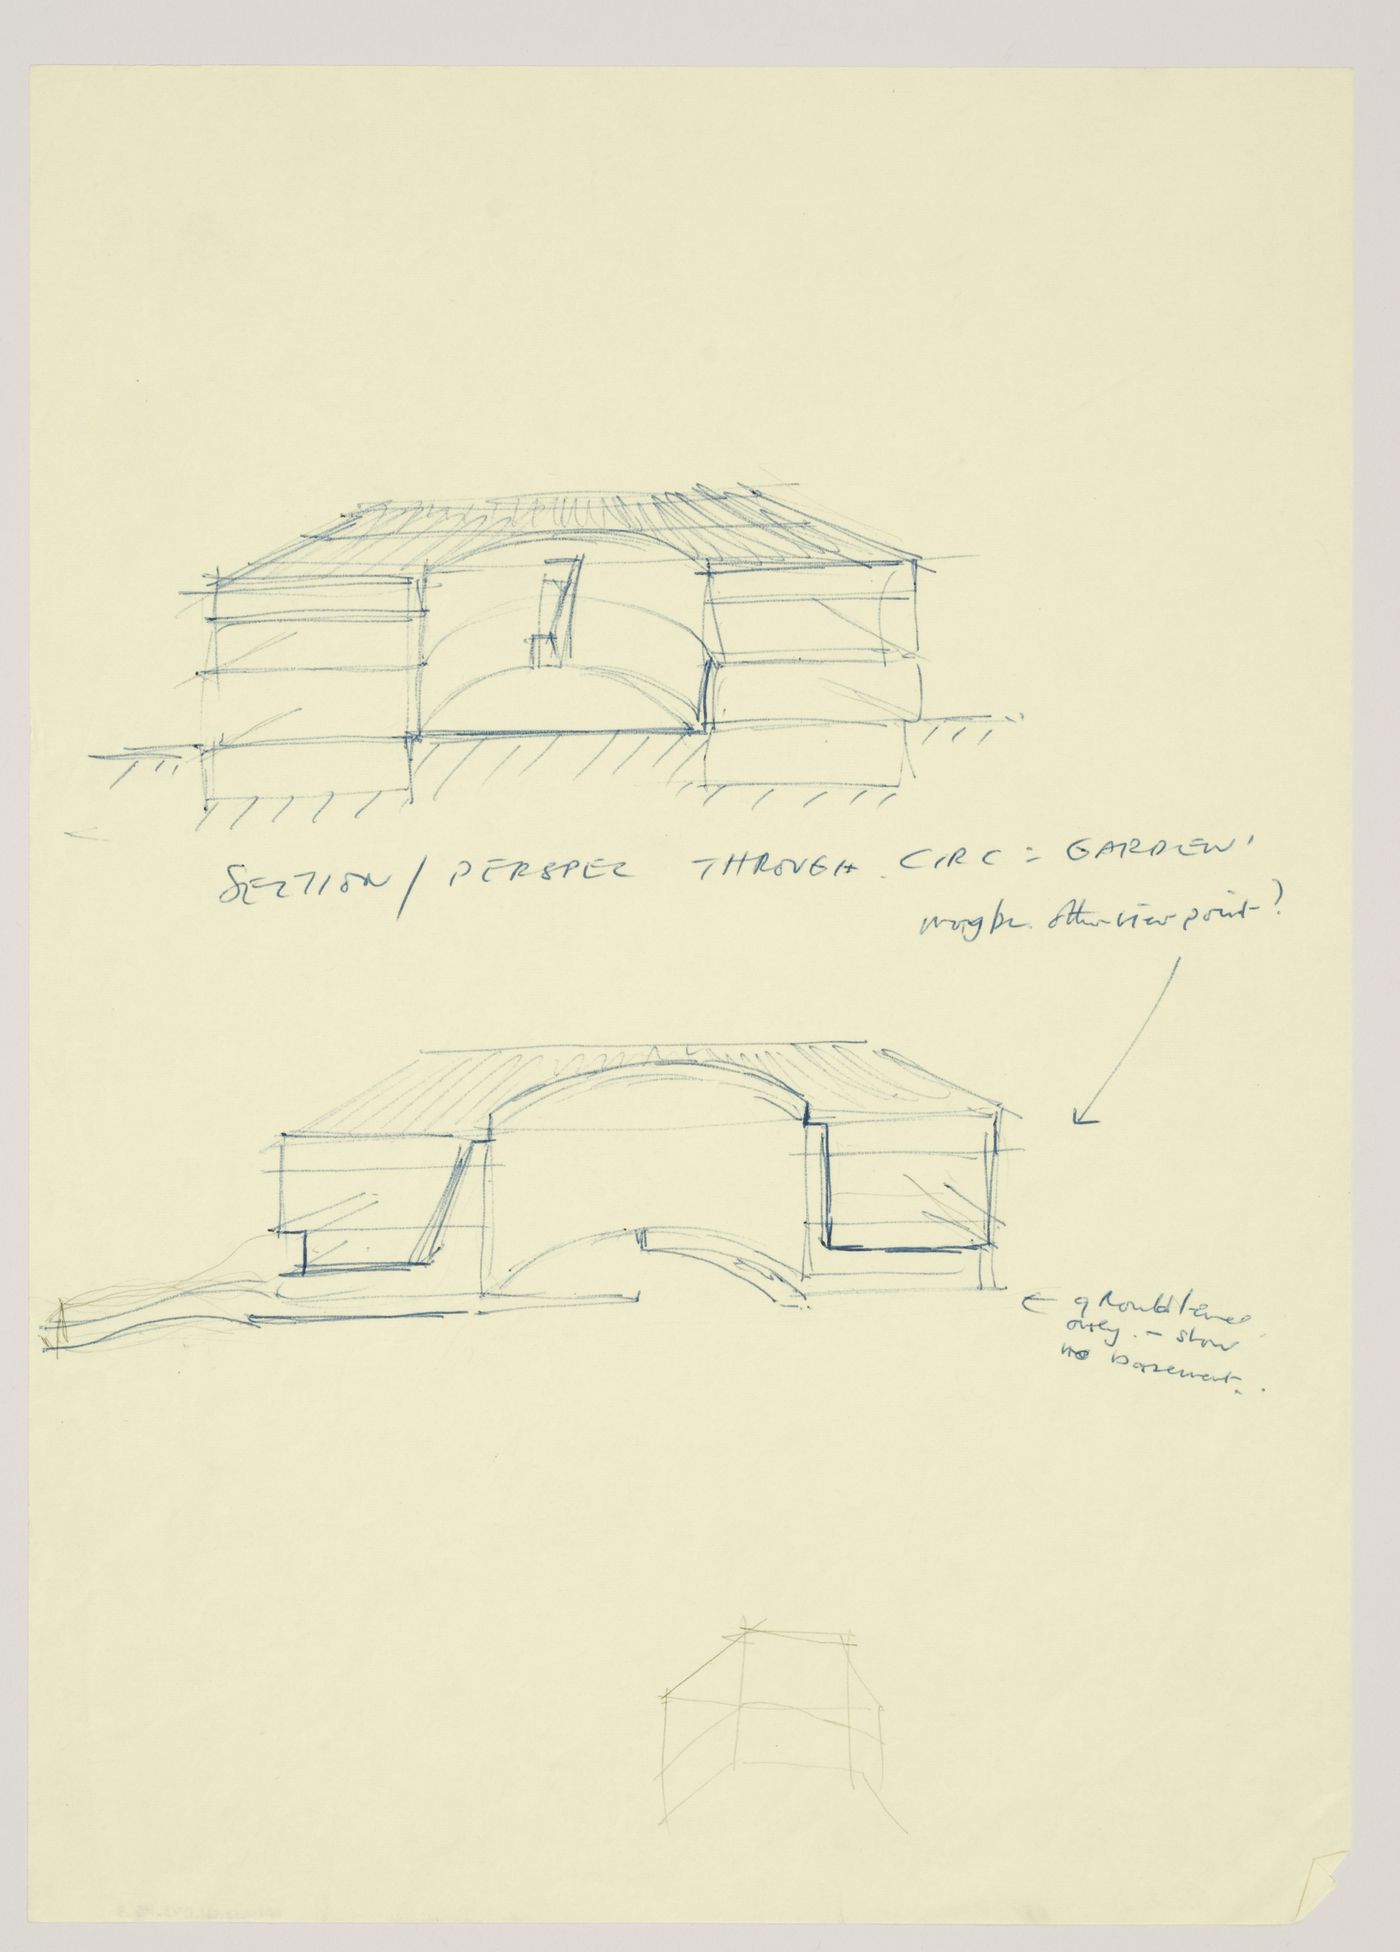 SECTION / PERSPEC THROUGH CIRC = GARDEN'
maybe other view point?
← ground level
only - show
no basement.